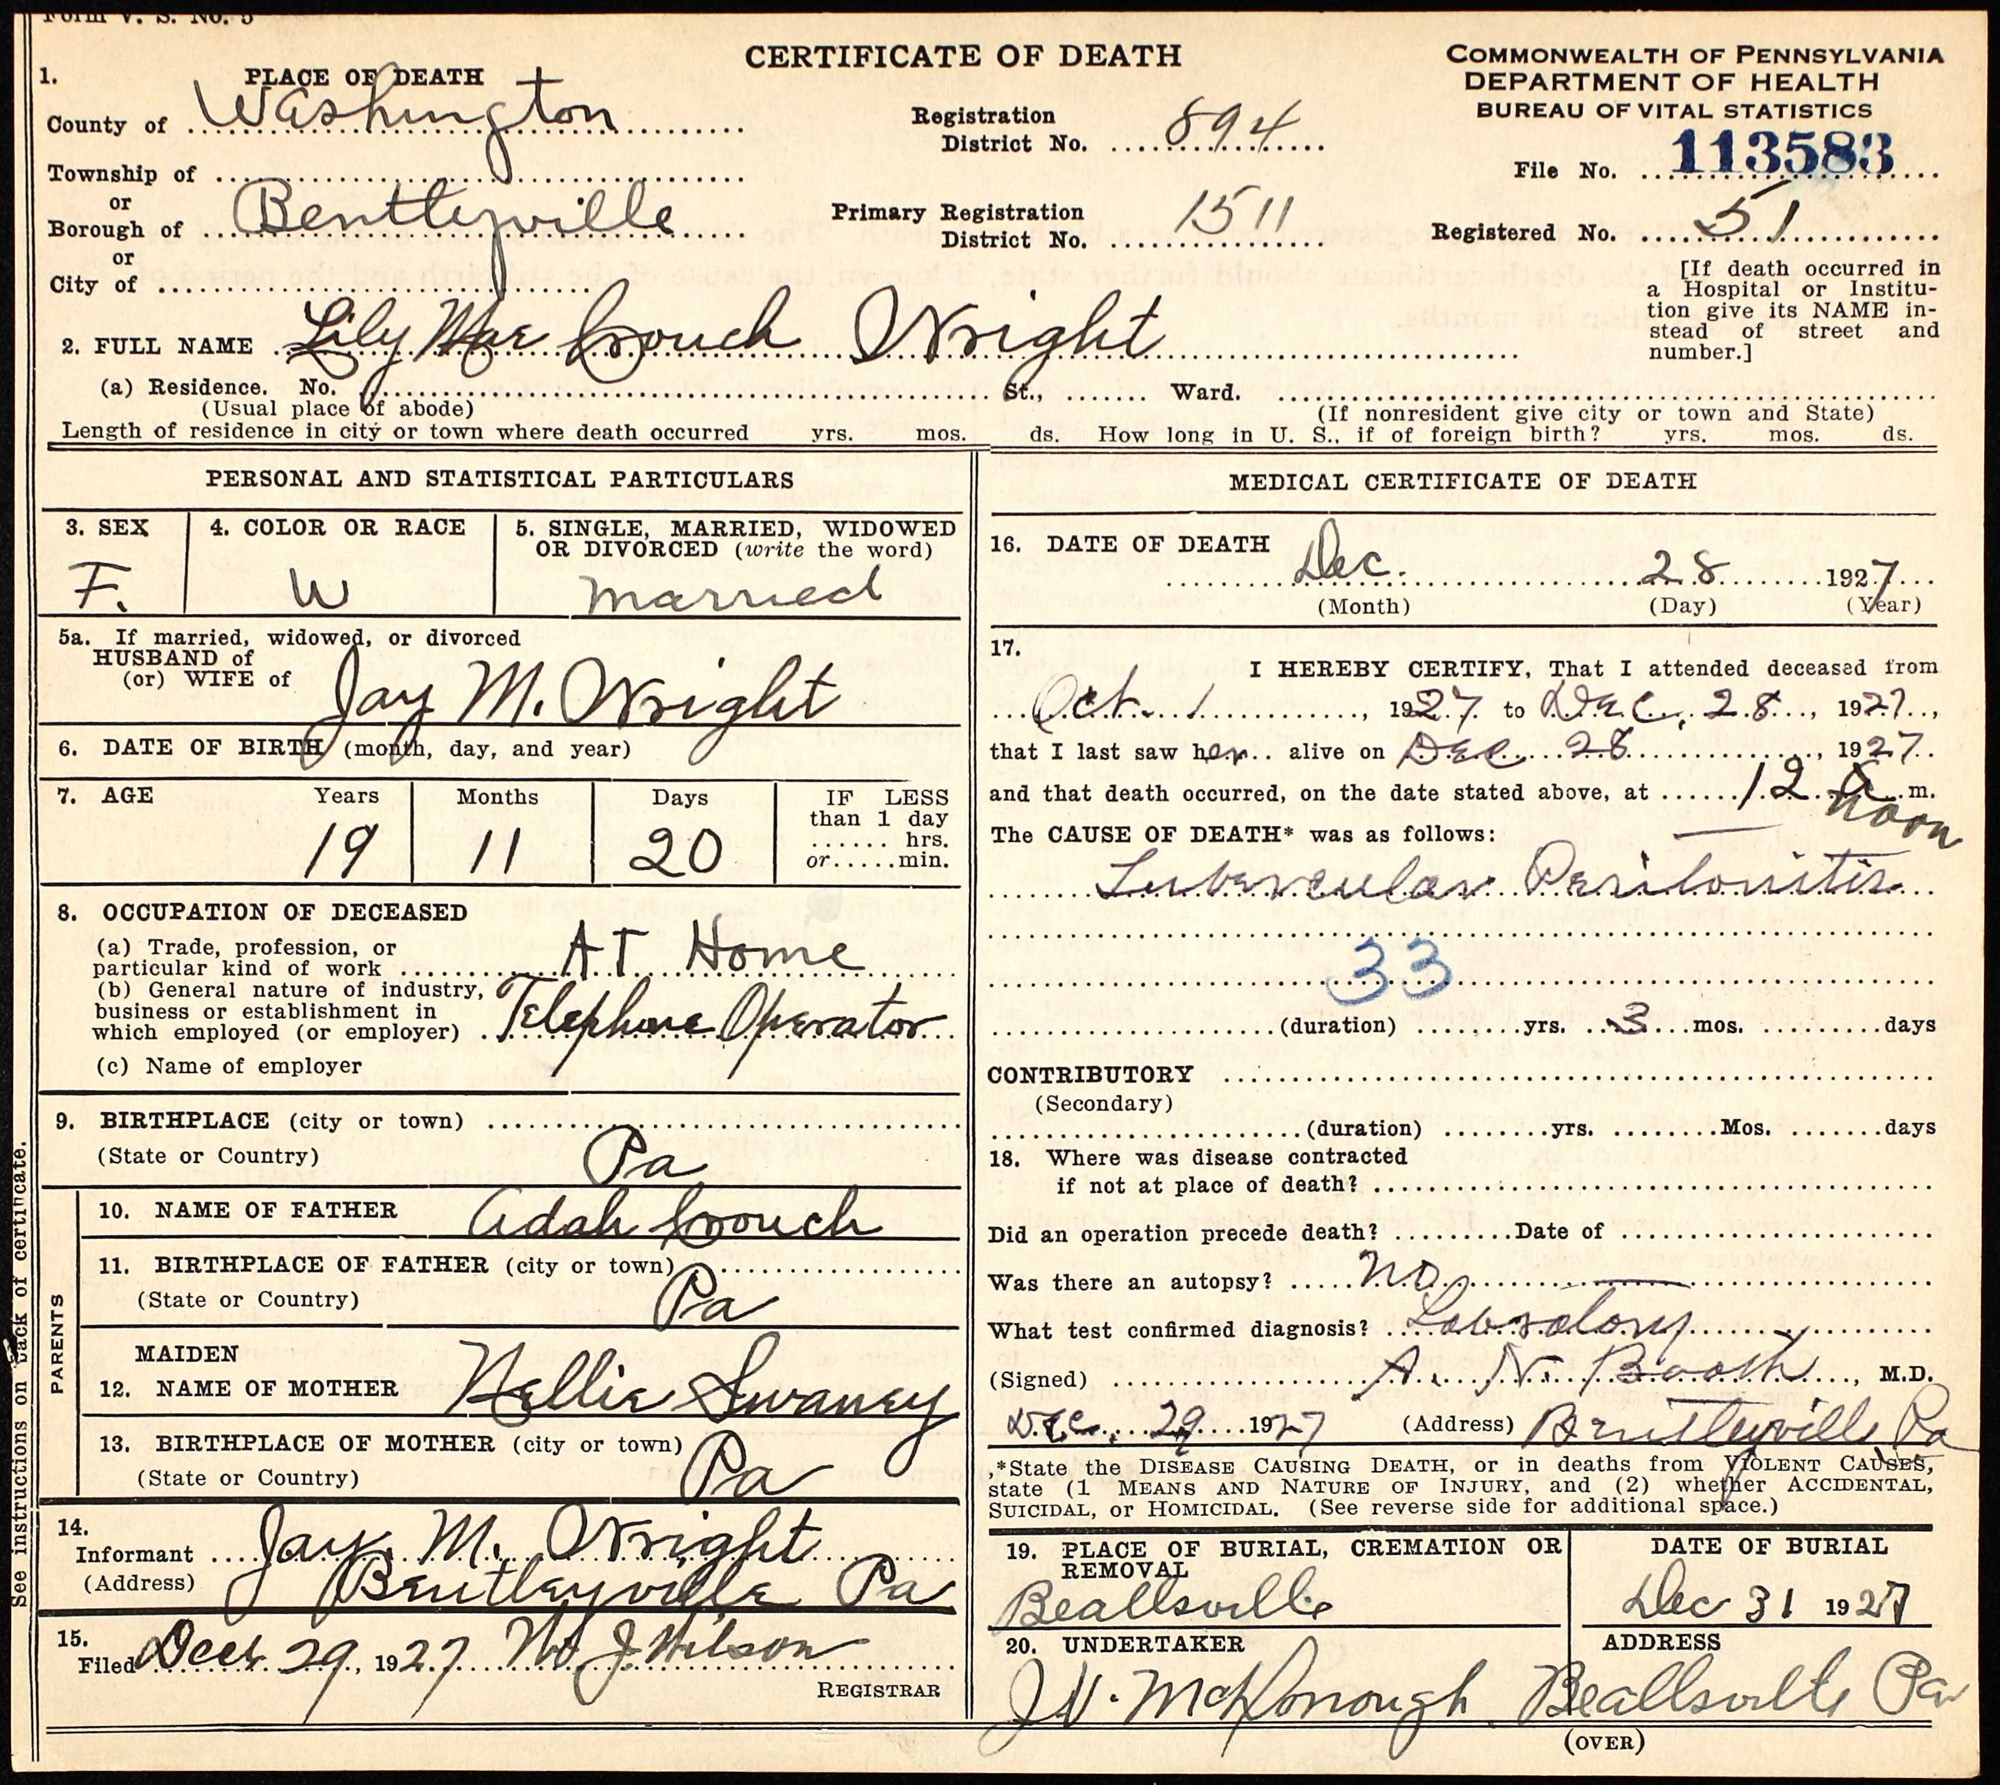 Form V. S. No. 5
CERTIFICATE OF DEATH
COMMONWEALTH OF PENNSYLVANIA
DEPARTMENT OF HEALTH
BUREAU OF VITAL STATISTICS
1. PLACE OF DEATH
County of Washington
Registration District No. 894
File No. 113583
Township of
or
Borough of Bentleyville
Primary Registration District No. 1511
Registered No. 51
or
City of
[If death occurred in
a Hospital or Institu-
tion give its NAME in-
stead of street and
number.]
2. FULL NAME Lily Mae Crouch Wright
(a) Residence. No. St., Ward.
(Usual place of abode) (If nonresident give city or town and State)
Length of residence in city or town where death occurred yrs. mos. ds. How long in U. S., if of foreign birth? yrs. mos. ds.
PERSONAL AND STATISTICAL PARTICULARS
3. SEX
F.
4. COLOR OR RACE
W
5. SINGLE, MARRIED, WIDOWED
OR DIVORCED (write the word)
married
5a. If married, widowed, or divorced
HUSBAND of
(or) WIFE of Jay M. Wright
6. DATE OF BIRTH (month, day, and year)
7. AGE Years Months Days IF LESS
than 1 day
...... hrs.
or.....min.
19 11 20
8. OCCUPATION OF DECEASED
(a) Trade, profession, or
particular kind of work AT Home
(b) General nature of industry,
business or establishment in
which employed (or employer) Telephone Operator
(c) Name of employer
9. BIRTHPLACE (city or town)
(State or Country) Pa
PARENTS
10. NAME OF FATHER Adah Crouch
11. BIRTHPLACE OF FATHER (city or town)
(State or Country) Pa
MAIDEN
12. NAME OF MOTHER Nellie Swaney
13. BIRTHPLACE OF MOTHER (city or town)
(State or Country) Pa
14. Informant Jay M. Wright
(Address) Bentleyville Pa
15. Filed Dec 29, 1927 J. Wilson
REGISTRAR
See instructions on back of certificate.
MEDICAL CERTIFICATE OF DEATH
16. DATE OF DEATH Dec. 28 1927
(Month) (Day) (Year)
17.
I HEREBY CERTIFY, That I attended deceased from
Oct. 1, 1927 to Dec. 28, 1927,
that I last saw her alive on Dec 28, 1927.
and that death occurred, on the date stated above, at 12 m.
noon
The CAUSE OF DEATH* was as follows:
Tubercular Peritonitis
33
(duration) yrs. 3 mos. days
CONTRIBUTORY
(Secondary)
(duration) yrs. Mos. days
18. Where was disease contracted
if not at place of death?
Did an operation precede death? Date of
Was there an autopsy? no
What test confirmed diagnosis? Labratory
(Signed) A. N. Booth, M.D.
Dec. 29 1927 (Address) Bentleyville Pa
*State the DISEASE CAUSING DEATH, or in deaths from VIOLENT CAUSES,
state (1 MEANS AND NATURE OF INJURY, and (2) whether ACCIDENTAL,
SUICIDAL, or HOMICIDAL. (See reverse side for additional space.)
19. PLACE OF BURIAL, CREMATION OR
REMOVAL
Beallsville
DATE OF BURIAL
Dec 31 1927
20. UNDERTAKER
J. V. McDonough
ADDRESS
Beallsville Pa
(OVER)